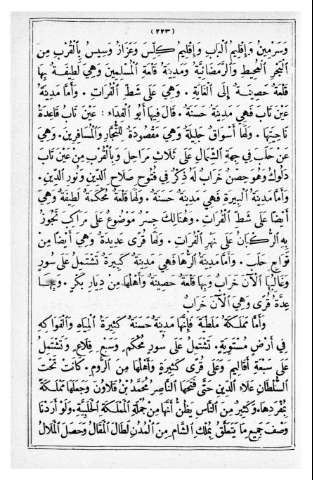 (٢٢٣)
وَسَرْمِينُ وَإِقْلِيمُ الْبَابِ وَإِقْلِيمُ كِلِّسَ وَعَزَازُ وَسِيسُ بِالْقُرْبِ مِنَ
الْبَحْرِ الْمُحِيطِ وَالرَّمَضَانِيَّةُ وَمَدِينَةُ قَلْعَةِ الْمُسْلِمِينَ وَهِيَ لَطِيفَةٌ بِهَا
قَلْعَةٌ حَصِينَةٌ إِلَى الْغَايَةِ . وَهِيَ عَلَى شَطِّ الْفُرَاتِ . وَأَمَّا مَدِينَةُ
عَيْنِ تَابَ فَهِيَ مَدِينَةٌ حَسَنَةٌ . قَالَ فِيهَا أَبُو الْفِدَاءِ : عَيْنُ تَابَ قَاعِدَةُ
نَاحِيَتِهَا . وَلَهَا أَسْوَاقٌ جَلِيلَةٌ وَهِيَ مَقْصُودَةٌ لِلتُّجَّارِ وَالْمُسَافِرِينَ . وَهِيَ
عَنْ حَلَبَ فِي جِهَةِ الشَّمَالِ عَلَى ثَلَاثِ مَرَاحِلَ وَبِالْقُرْبِ مِنْ عَيْنِ تَابَ
دَلُوكُ وَهُوَ حِصْنٌ خَرَابٌ لَهُ ذِكْرٌ فِي فُتُوحِ صَلَاحِ الدِّينِ وَنُورِ الدِّينِ .
وَأَمَّا مَدِينَةُ الْبِيرَةِ فَهِيَ مَدِينَةٌ حَسَنَةٌ . وَلَهَا قَلْعَةٌ مُحْكَمَةٌ لَطِيفَةٌ وَهِيَ
أَيْضًا عَلَى شَطِّ الْفُرَاتِ . وَهُنَالِكَ جِسْرٌ مَوْضُوعٌ عَلَى مَرَاكِبَ تَجُوزُ
بِهِ الرُّكْبَانُ عَلَى نَهْرِ الْفُرَاتِ . وَلَهَا قُرًى عَدِيدَةٌ وَهِيَ أَيْضًا مِنْ
تَوَابِعِ حَلَبَ . وَأَمَّا مَدِينَةُ الرُّهَا فَهِيَ مَدِينَةٌ كَبِيرَةٌ تَشْتَمِلُ عَلَى سُورٍ
وَغَالِبُهَا الْآنَ خَرَابٌ وَبِهَا قَلْعَةٌ حَصِينَةٌ وَأَهْلُهَا مِنْ دِيَارِ بَكْرٍ .
عِدَّةُ قُرًى وَهِيَ الْآنَ خَرَابٌ
وَأَمَّا مَمْلَكَةُ مَلَطْيَةَ فَإِنَّهَا مَدِينَةٌ حَسَنَةٌ كَثِيرَةُ الْمِيَاهِ وَالْفَوَاكِهِ
فِي أَرْضٍ مُسْتَوِيَةٍ . تَشْتَمِلُ عَلَى سُورٍ مُحْكَمٍ وَسَبْعِ قِلَاعٍ . وَتَشْتَمِلُ
عَلَى سَبْعَةِ أَقَالِيمَ وَعَلَى قُرًى كَثِيرَةٍ وَأَهْلُهَا مِنَ الرُّومِ . كَانَتْ تَحْتَ
السُّلْطَانِ عَلَاءِ الدِّينِ حَتَّى فَتَحَهَا النَّاصِرُ مُحَمَّدُ بْنُ قَلَاوُونَ وَجَعَلَهَا مَمْلَكَةً
بِمُفْرَدِهَا . وَكَثِيرٌ مِنَ النَّاسِ يَظُنُّ أَنَّهَا مِنْ جُمْلَةِ الْمَمْلَكَةِ الْحَلَبِيَّةِ . وَلَوْ أَرَدْنَا
وَصْفَ جَمِيعِ مَا يَتَعَلَّقُ بِمُلْكِ الشَّامِ مِنَ الْمُدُنِ لَطَالَ الْمَقَالُ وَحَصَلَ الْمَلَالُ